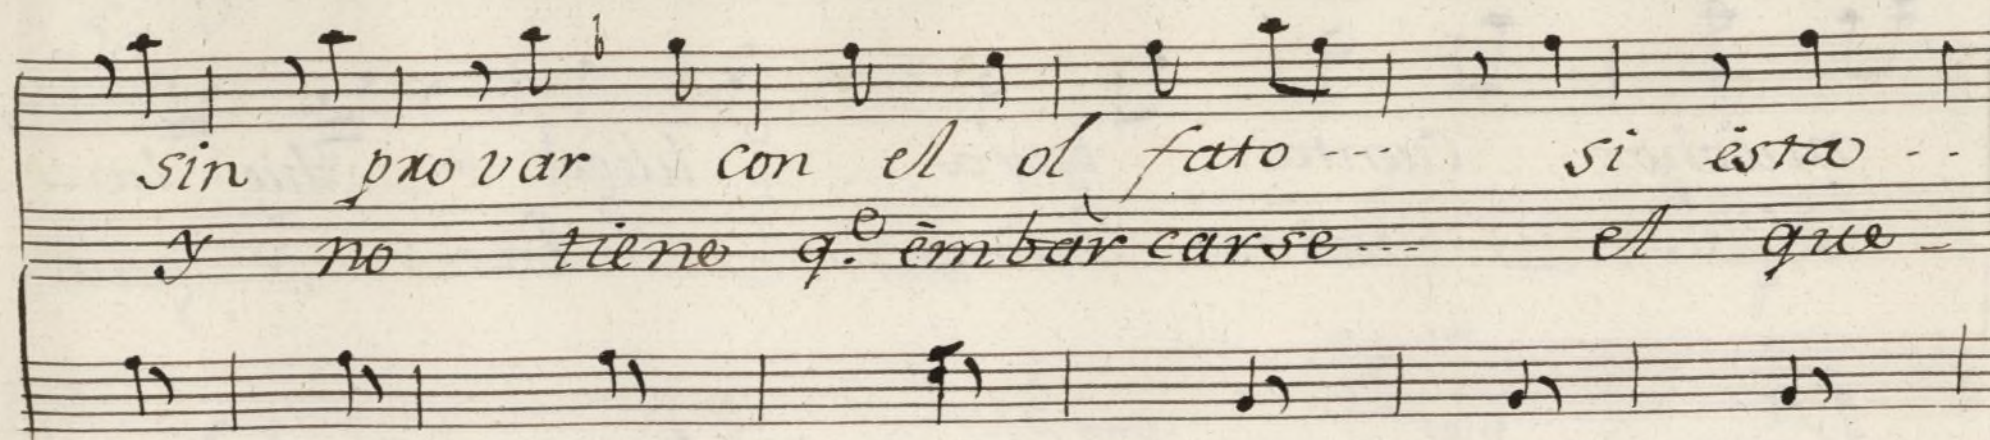 sin pro var con el ol fato --- si ésta --
y no tiene q.e émbàr carse --- el que -